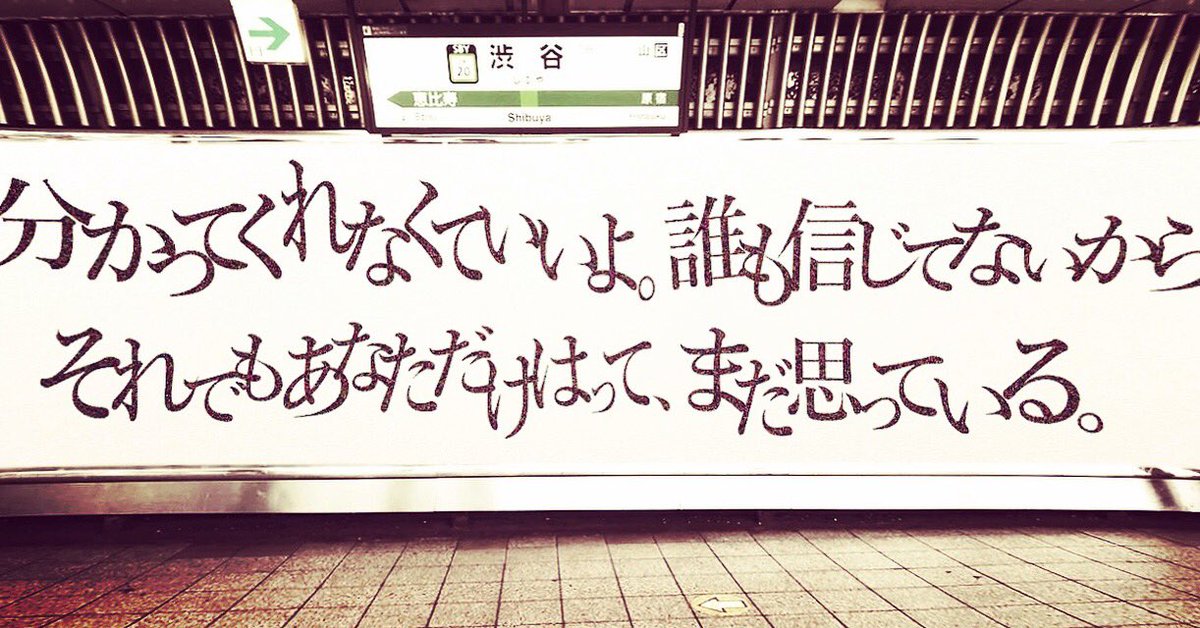 SBY
20
渋谷
山 区
しぶや
恵比寿
原宿
Shibuya
分かってくれなくていいよ。誰も信じてないから
それでもあなただけはって、まだ思っている。